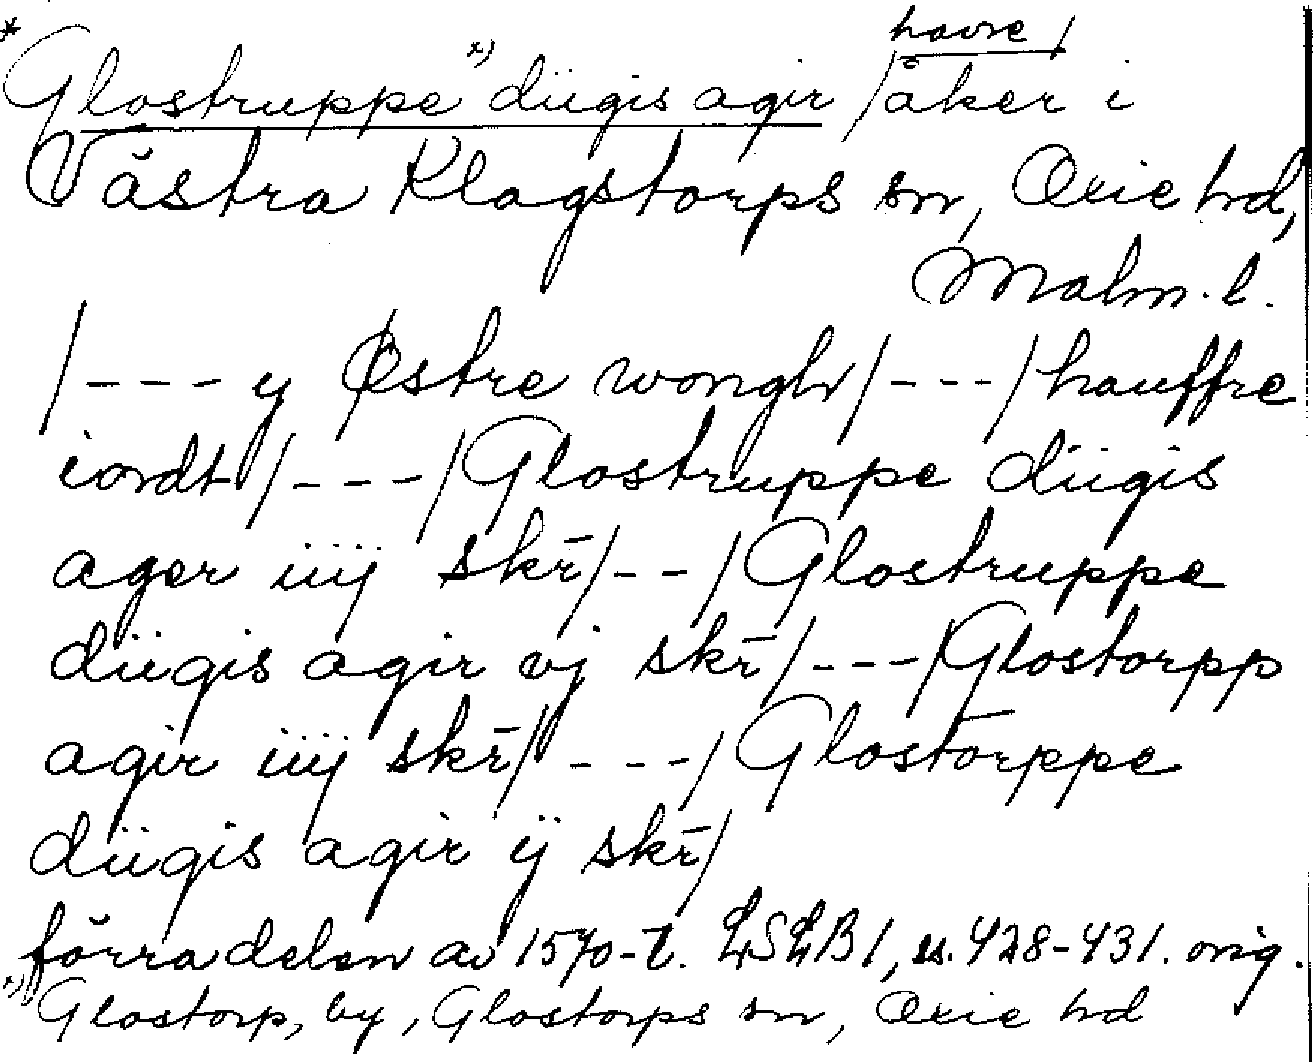 havre/
*Glostruppe x) diigis agir /åker i
Västra Klagstorps sn, Oxie hd,
Malm. l.
/--- y Østre wongh/---/hauffre
iordt/---/Glostruppe diigis
ager iiij skr̄/--/Glostruppe
diigis agir vj skr̄/---/Glostorpp
agir iiij skr̄/---/Glostorppe
diigis agir ij skr̄/
förra delen av 1570-t. LSLB 1, ss. 428-431. orig.
x) Glostorp, by, Glostorps sn, Oxie hd